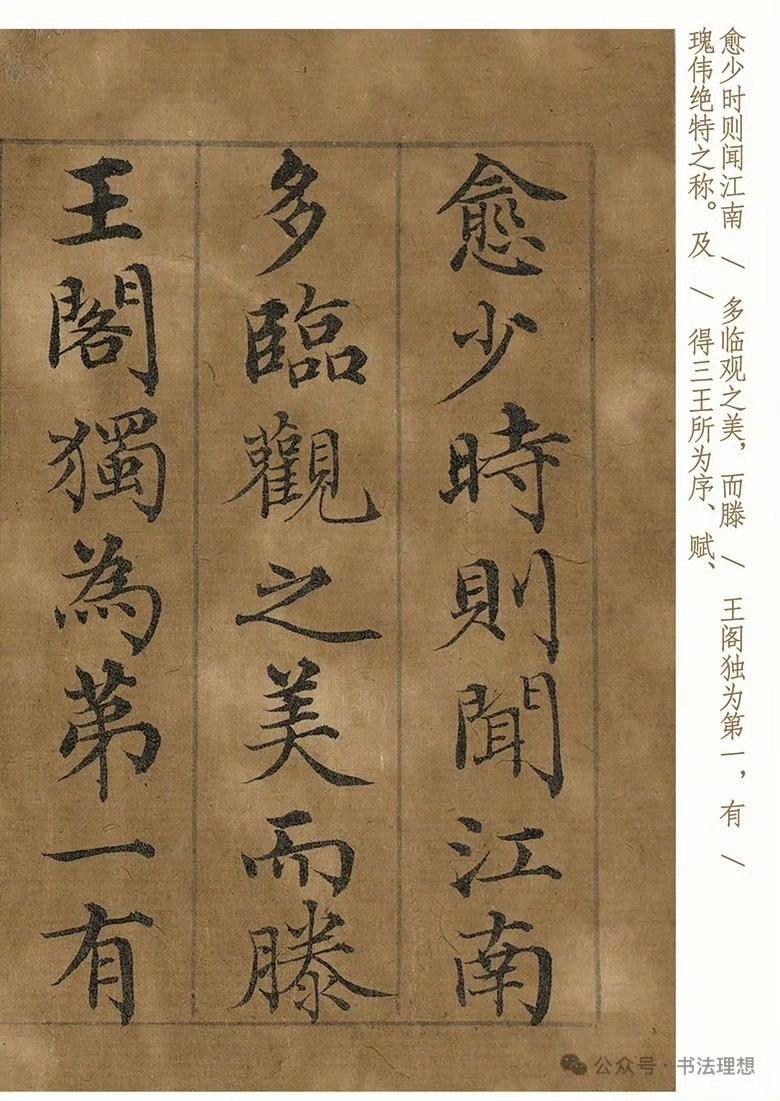 愈少时则闻江南 \ 多临观之美，而滕 \ 王阁独为第一，有 \
瑰伟绝特之称。及 \ 得三王所为序、赋、
愈少時則聞江南
多臨觀之美而滕
王閣獨為第一有
公众号·书法理想